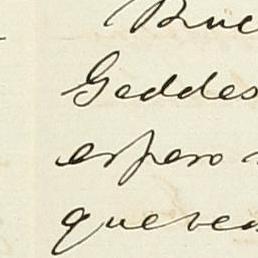 Bue
Geddes
espero
que vea